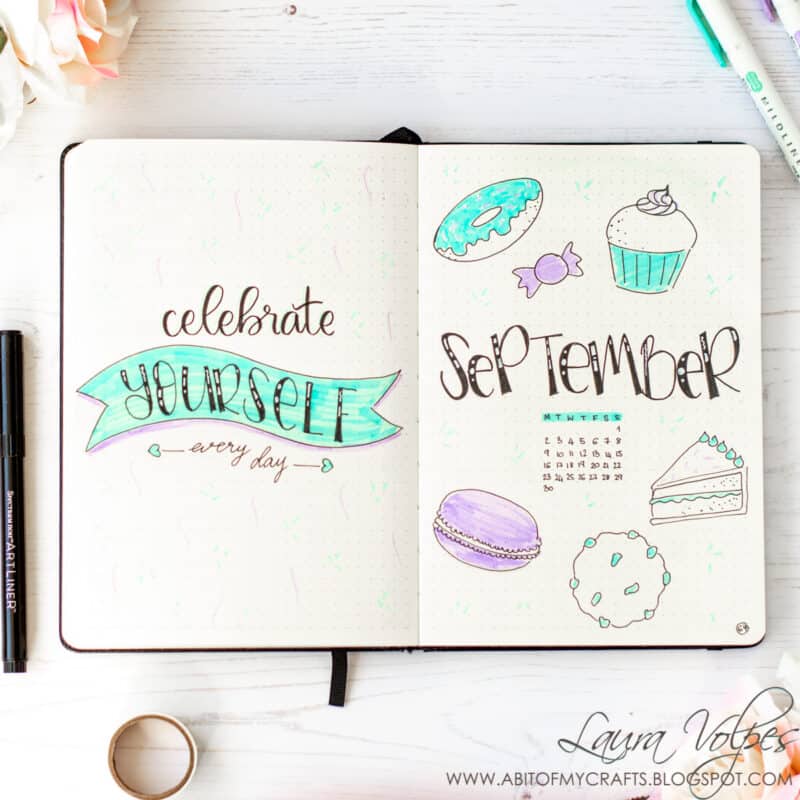 MILDLINER
celebrate
YOURSELF
every day
SEPTEMBER
M T W T F S S
1
2 3 4 5 6 7 8
9 10 11 12 13 14 15
16 17 18 19 20 21 22
23 24 25 26 27 28 29
30
SPECTRUM NOIR ARTLINER
Laura Volpes
WWW.ABITOFMYCRAFTS.BLOGSPOT.COM